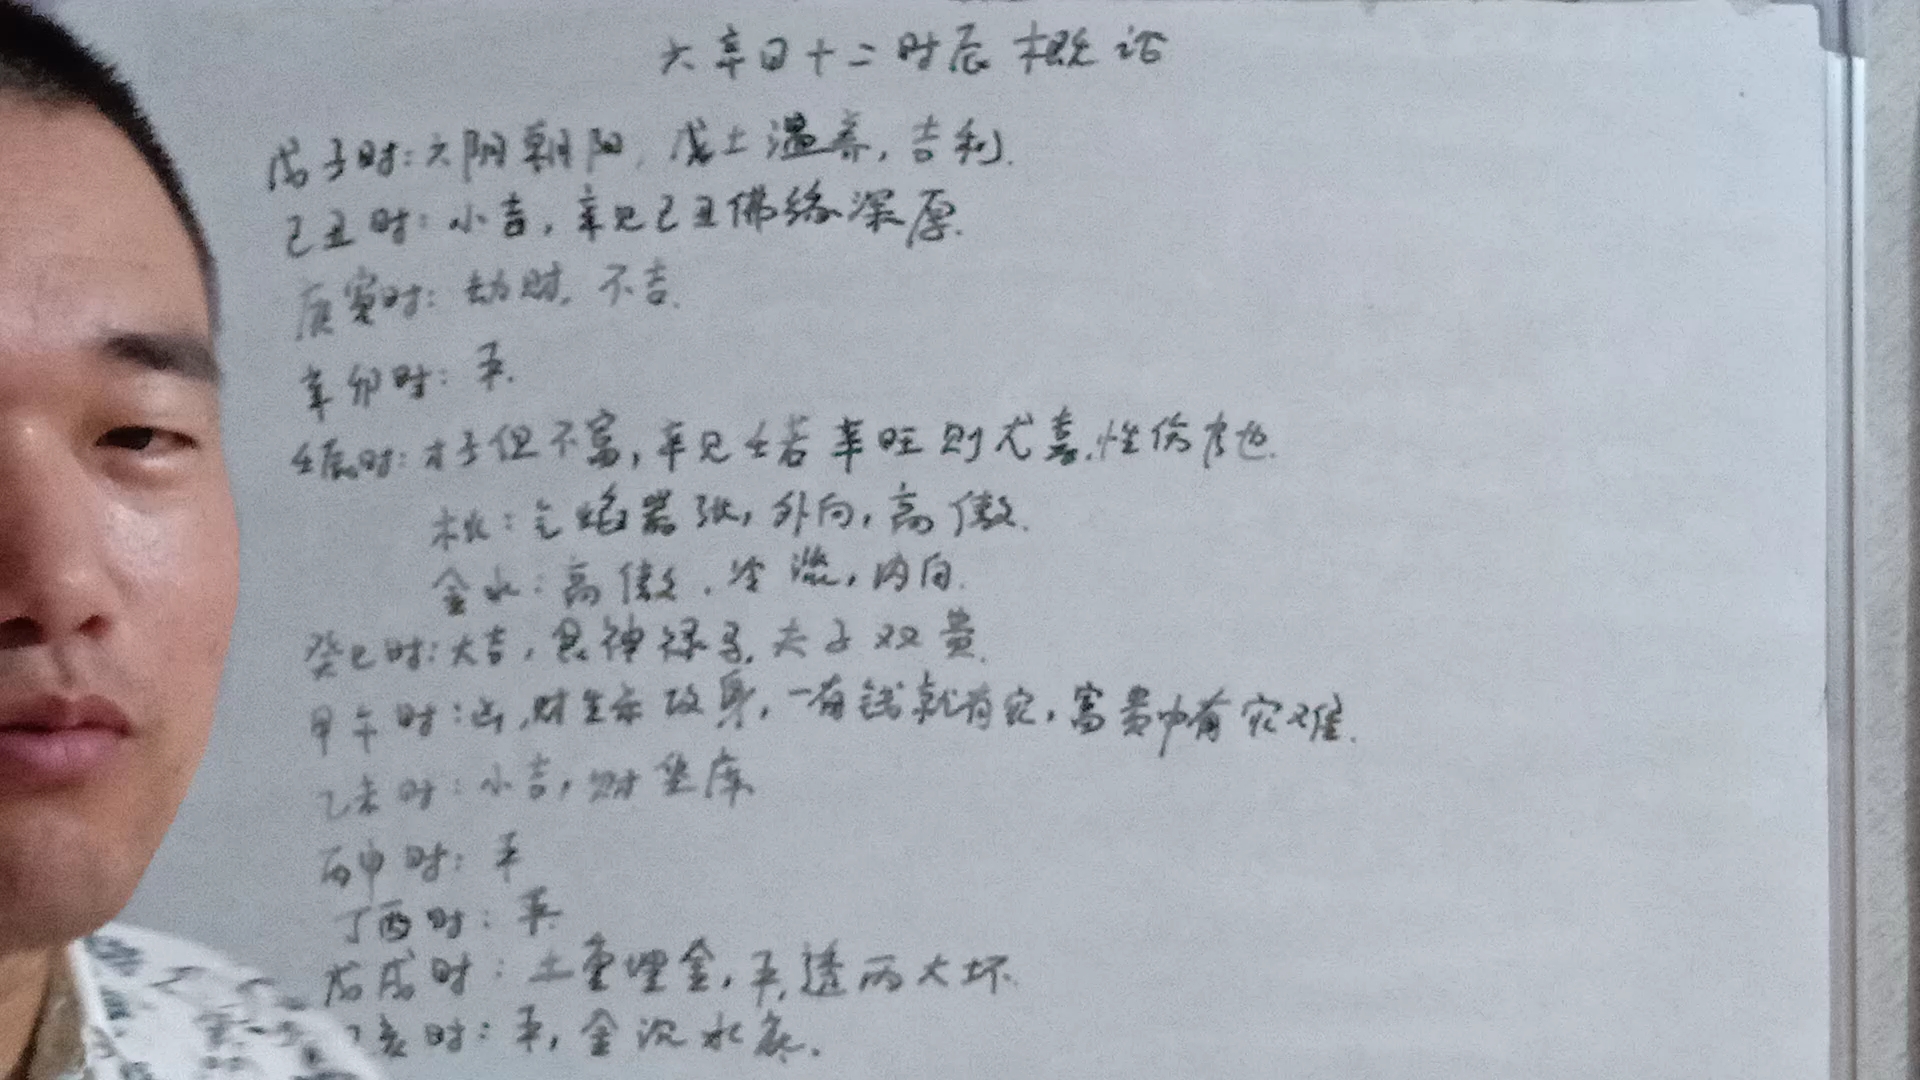 六辛日十二时辰概论
戊子时:六阴朝阳,戊土温养,吉利.
己丑时:小吉,辛见己丑佛缘深厚.
庚寅时:劫财,不吉.
辛卯时:平.
壬辰时:才子但不富,辛见壬若辛旺则尤喜.性伤官也.
木火:气焰嚣张,外向,高傲.
金水:高傲.冷淡,内向.
癸巳时:大吉,食神禄马,夫子双贵.
甲午时:凶,财生杀攻身,一有钱就有灾,富贵中有灾难.
乙未时:小吉,财坐库
丙申时:平
丁酉时:平.
戊戌时:土重埋金,平,透丙大坏.
亥时:平,金沉水底.